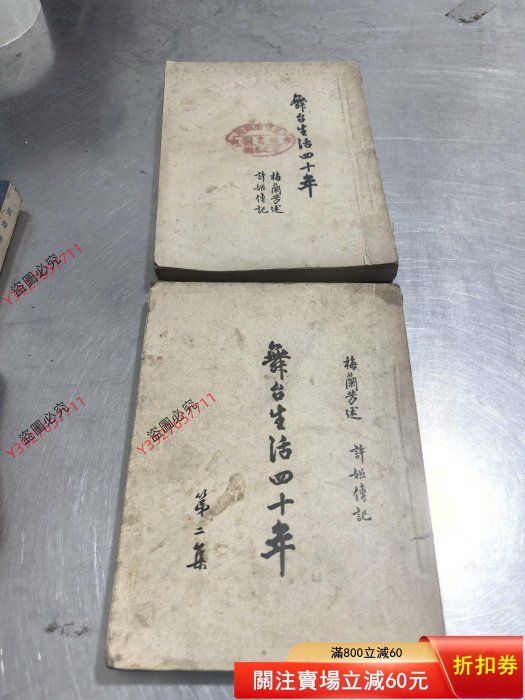 舞台生活四十年
梅蘭芳述
許姬傳記
舞台生活四十年
梅蘭芳述 許姬傳記
第二集
盜圖必究
盜圖必究
盜圖必究
盜圖必究
滿800立減60
關注賣場立減60元
折扣券